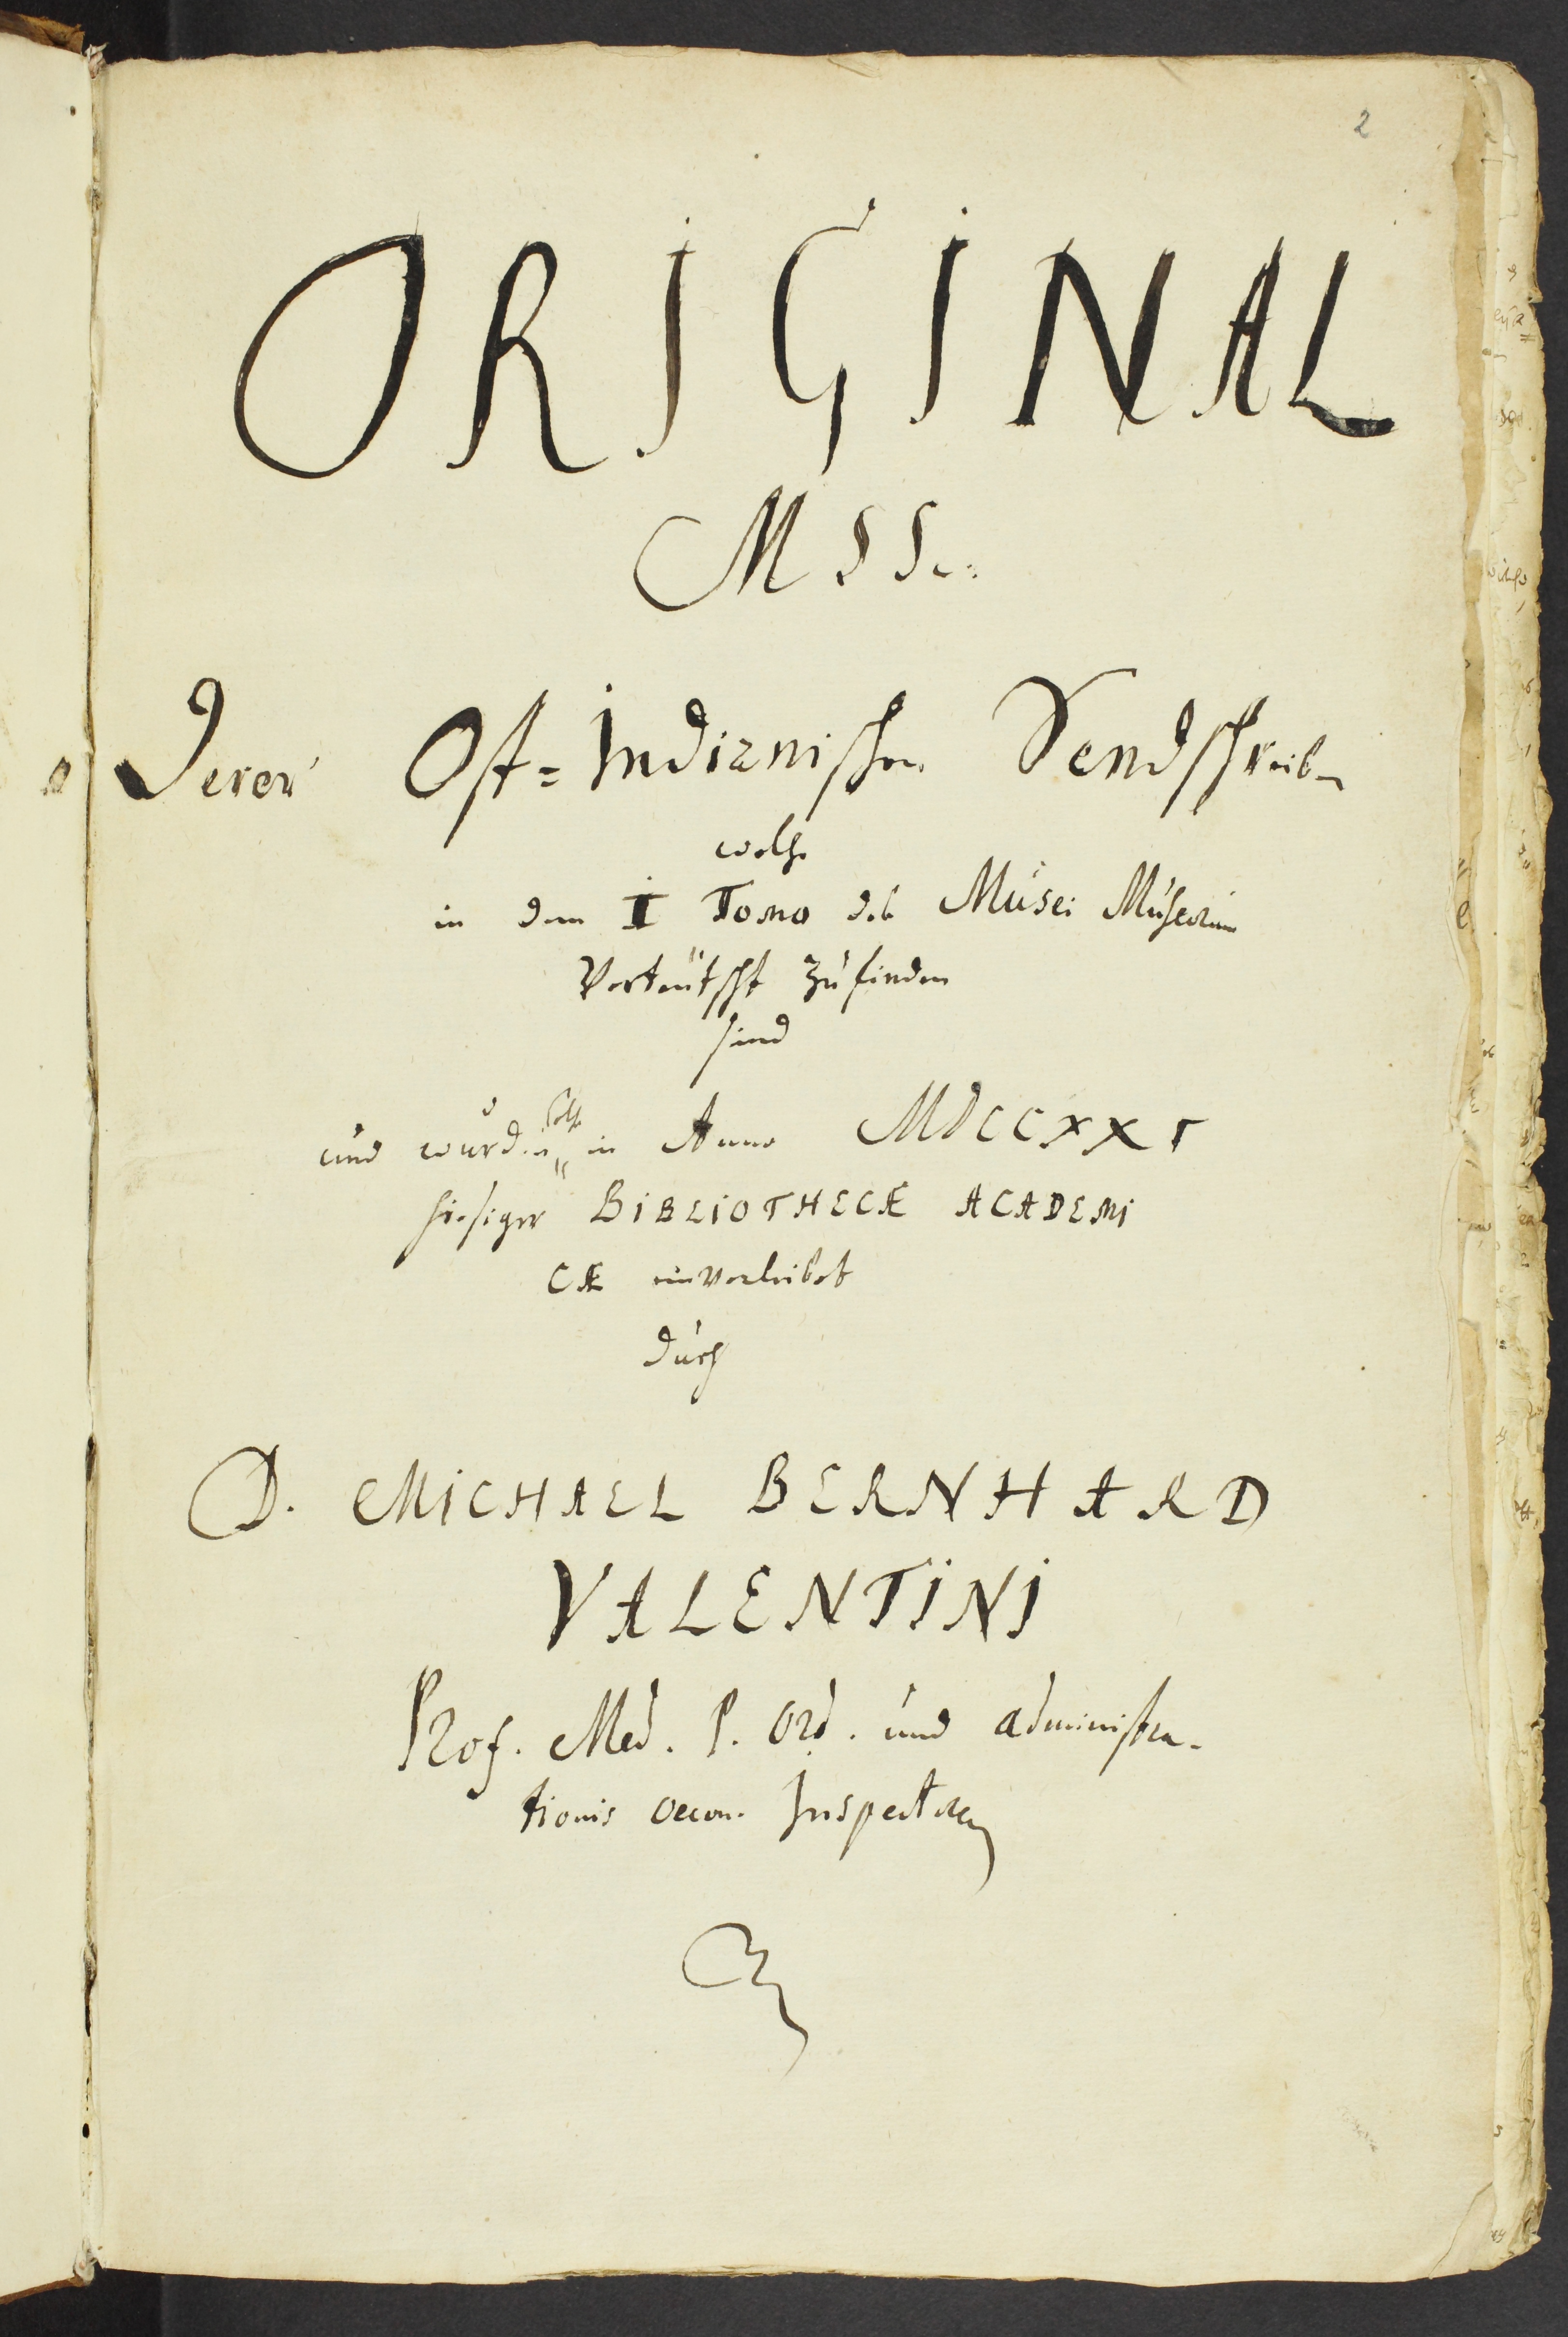 2
ORIGINAL
MSSc.
Derer Ost=Indianischen Sendschreiben
welche
in dem I Tomo des Musei Museorum
Verteutscht zu finden
sind
und wurden solche in Anno MDCCXXI
hiesiger BIBLIOTHECÆ ACADEMI
CÆ einverleibet
durch
D. MICHAEL BERNHARD
VALENTINI
Prof. Med. P. Ord. und administra-
tionis oecon. Inspectorem